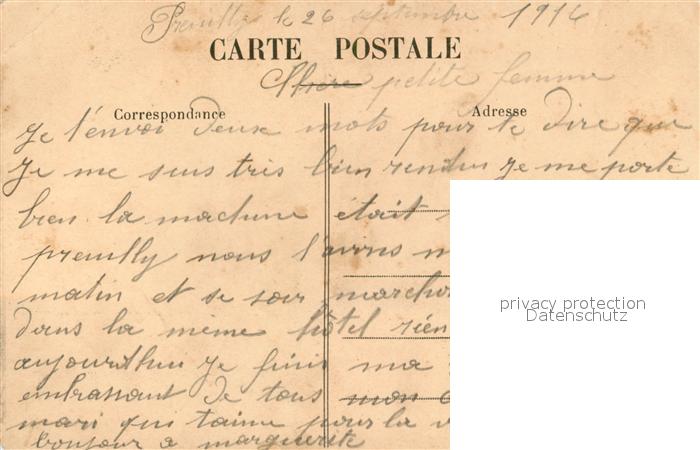 Preuilly le 26 septembre 1914
CARTE POSTALE
Chère petite femme
Correspondance
Adresse
Je t'envoi deux mots pour te dire que
Je me suis très bien rendu Je me porte
bien la machine était
preuilly nous l'avons
matin et se soir marcho
dans la même hôtel rien
aujourdhui Je finis ma
embrassant de tous mon
mari qui taime pour la v
bonjour a marguerite
privacy protection
Datenschutz